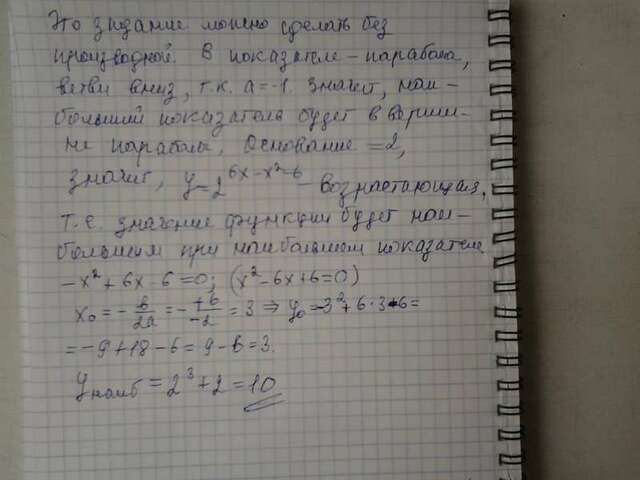 Это задание можно сделать без
производной. В показателе – парабола,
ветви вниз, т.к. a=-1. Значит, наи-
больший показатель будет в верши-
не параболы. Основание =2,
значит, y=2^{6x-x²-6} – возрастающая,
т.е. значение функции будет наи-
большим при наибольшем показателе
-x²+6x-6=0; (x²-6x+6=0)
x₀ = -b/2a = -+6/-2 = 3 ⇒ y₀=-3²+6·3-6=
=-9+18-6=9-6=3.
Yнаиб =2³+2=10